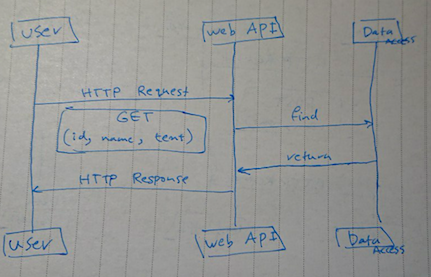 user
web API
Data
Access
HTTP Request
GET
(id, name, text)
find
return
HTTP Response
user
web API
Data
Access